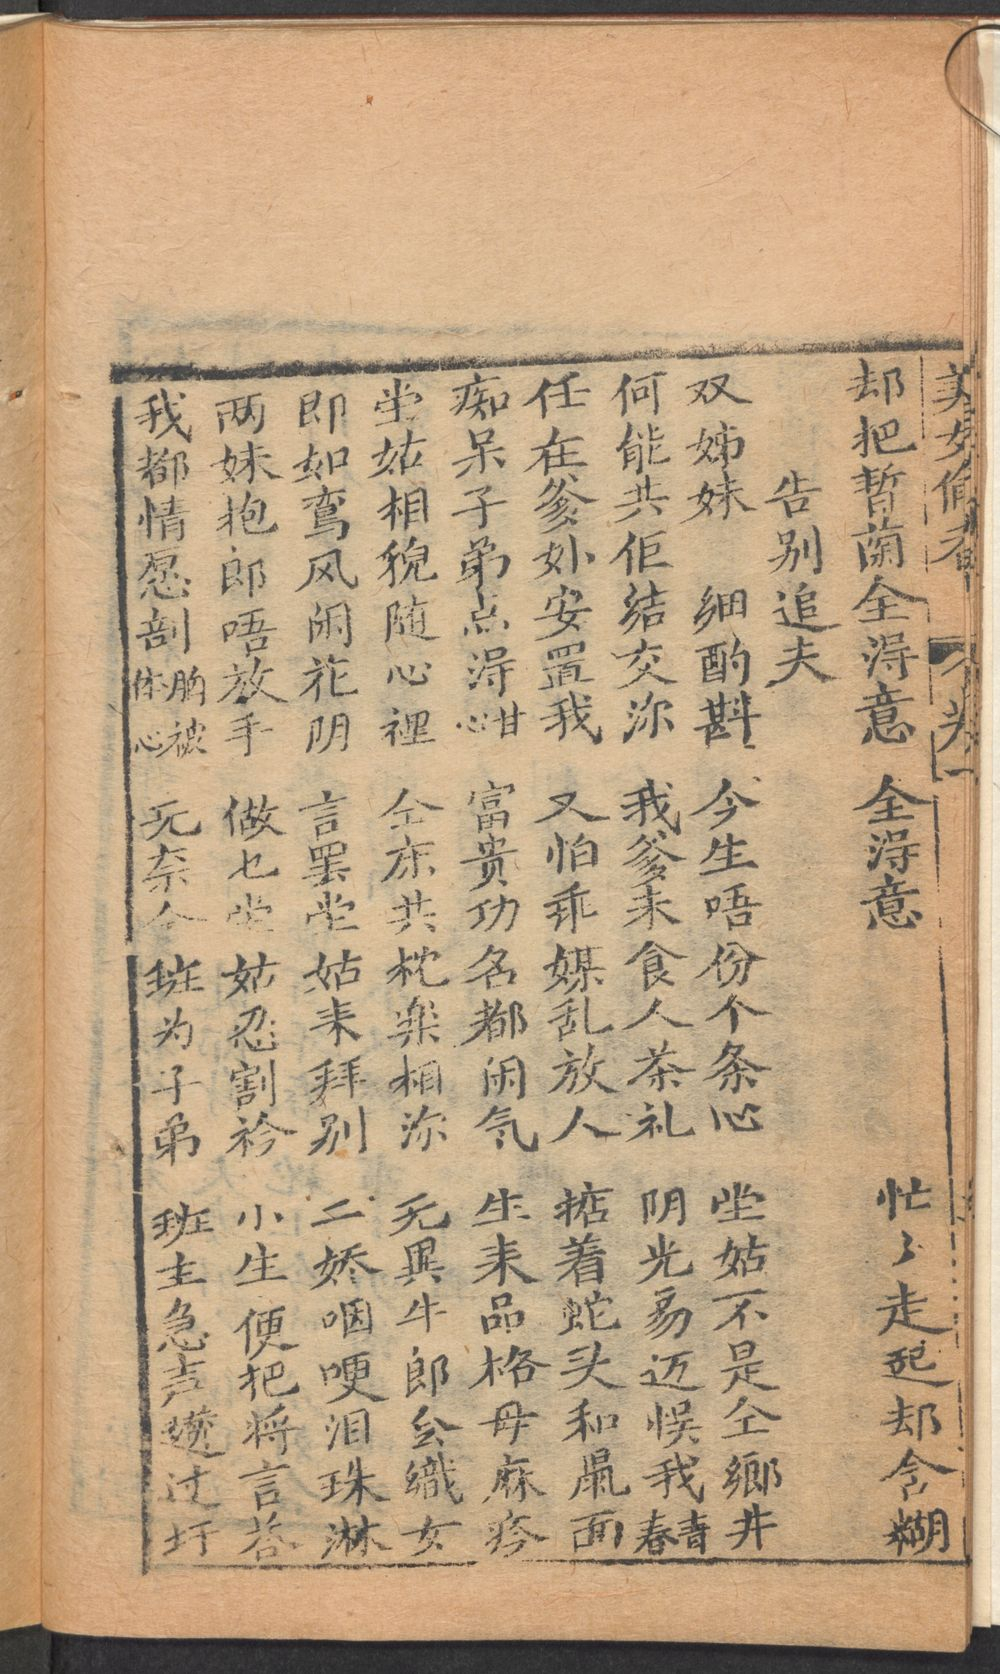 美女偷香 下卷 一
却把晢蘭全淂意 全淂意 忙〻走起却含糊
告别追夫
双姊妹 细酌斟 今生唔份个条心 坐姑不是仝鄉井
何能共佢结交深 我爹耒食人茶礼 阴光易迈悞我青春
任在爹妳安置我 又怕乖媒乱放人 掂着蛇头和鼡面
痴呆子弟点淂甘心 富贵功名都闲气 生耒品格毋麻疹
坐姑相貌随心裡 仝床共枕楽相深 无異牛郎会織女
即如鸾风闲花阴 言罢坐姑耒拜别 二娇咽哽泪珠淋
两妹抱郎唔放手 做乜坐姑忍割衿 小生便把将言答
我都情愿剖胸被体心 无奈今班为子弟 班主急声过圩